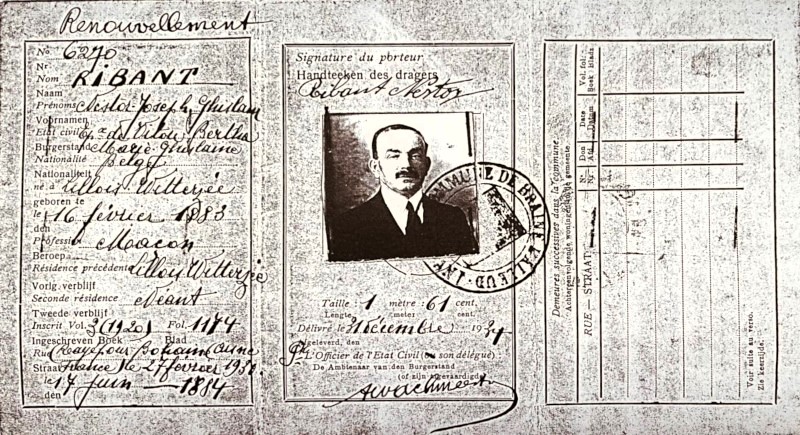 Renouvellement
No 6270
Nr
Nom RIBANT
Naam
Prénoms Nestor Joseph Ghislain
Voornamen
Etat civil épx de Vilou Bertha
Burgerstand Marie Ghislaine
Nationalité Belge
Nationaliteit
né à Lillois Witterzée
geboren te
le 16 février 1883
den
Profession Maçon
Beroep
Résidence précédente Lillois Witterzée
Vorig verblijf
Seconde résidence Néant
Tweede verblijf
Inscrit Vol. 3 (1920) Fol. 1174
Ingeschreven Boek Blad
Rue Rayé pour
Straat France le 21 février 193
le 17 juin 1884
den
Signature du porteur
Handteeken des dragers
Ribant Nestor
COMMUNE DE BRAINE L'ALLEUD
Taille: 1 mètre: 61 cent.
Lengte meter cent.
Délivré le décembre 193
Afgeleverd, den
L'Officier de l'Etat Civil (ou son délégué)
De Ambtenaar van den Burgerstand
(of zijn afgevaardigde)
Demeures successives dans la commune.
Achtereenvolgende woningen in de gemeente
RUE — STRAAT
No
Nr
Don
Adl
Date
Datum
Vol. fol.
Boek bladz.
Voir suite au verso.
Zie keerzijde.